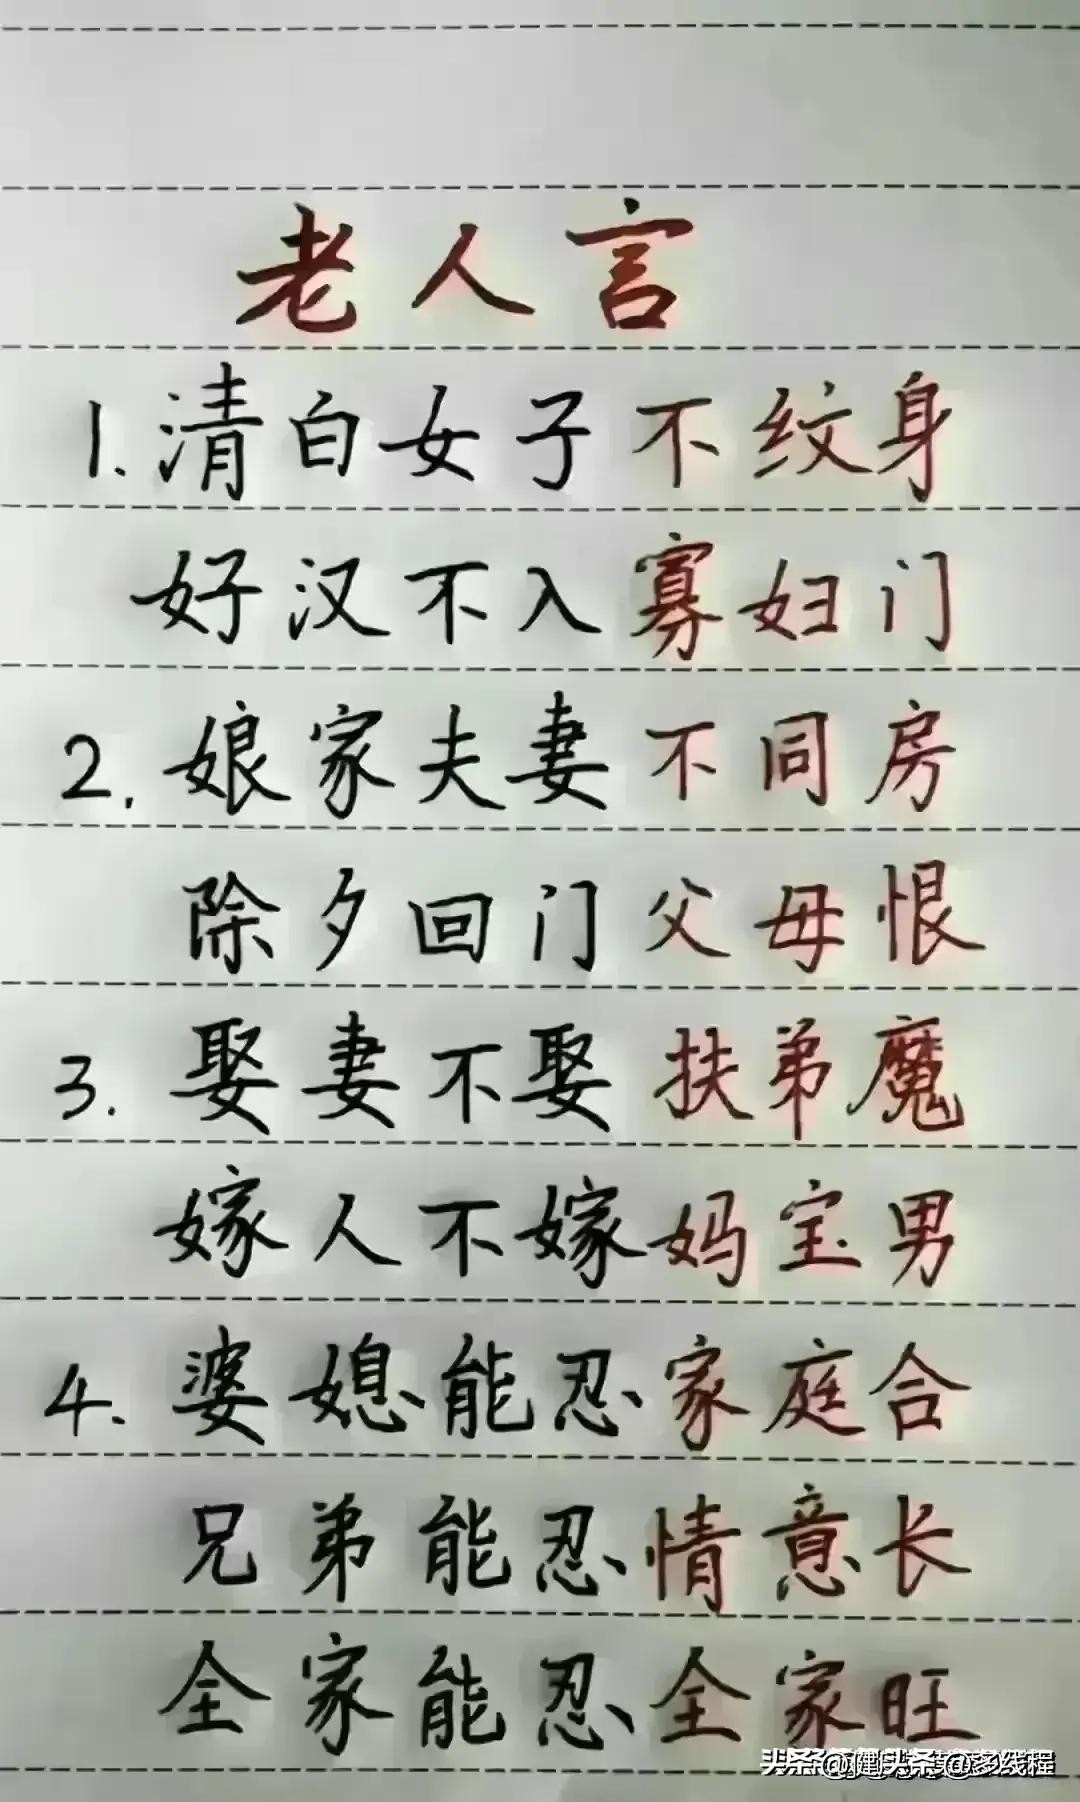 老人言
1.清白女子不纹身
好汉不入寡妇门
2.娘家夫妻不同房
除夕回门父母恨
3.娶妻不娶扶弟魔
嫁人不嫁妈宝男
4.婆媳能忍家庭合
兄弟能忍情意长
全家能忍全家旺
头条 @多线程